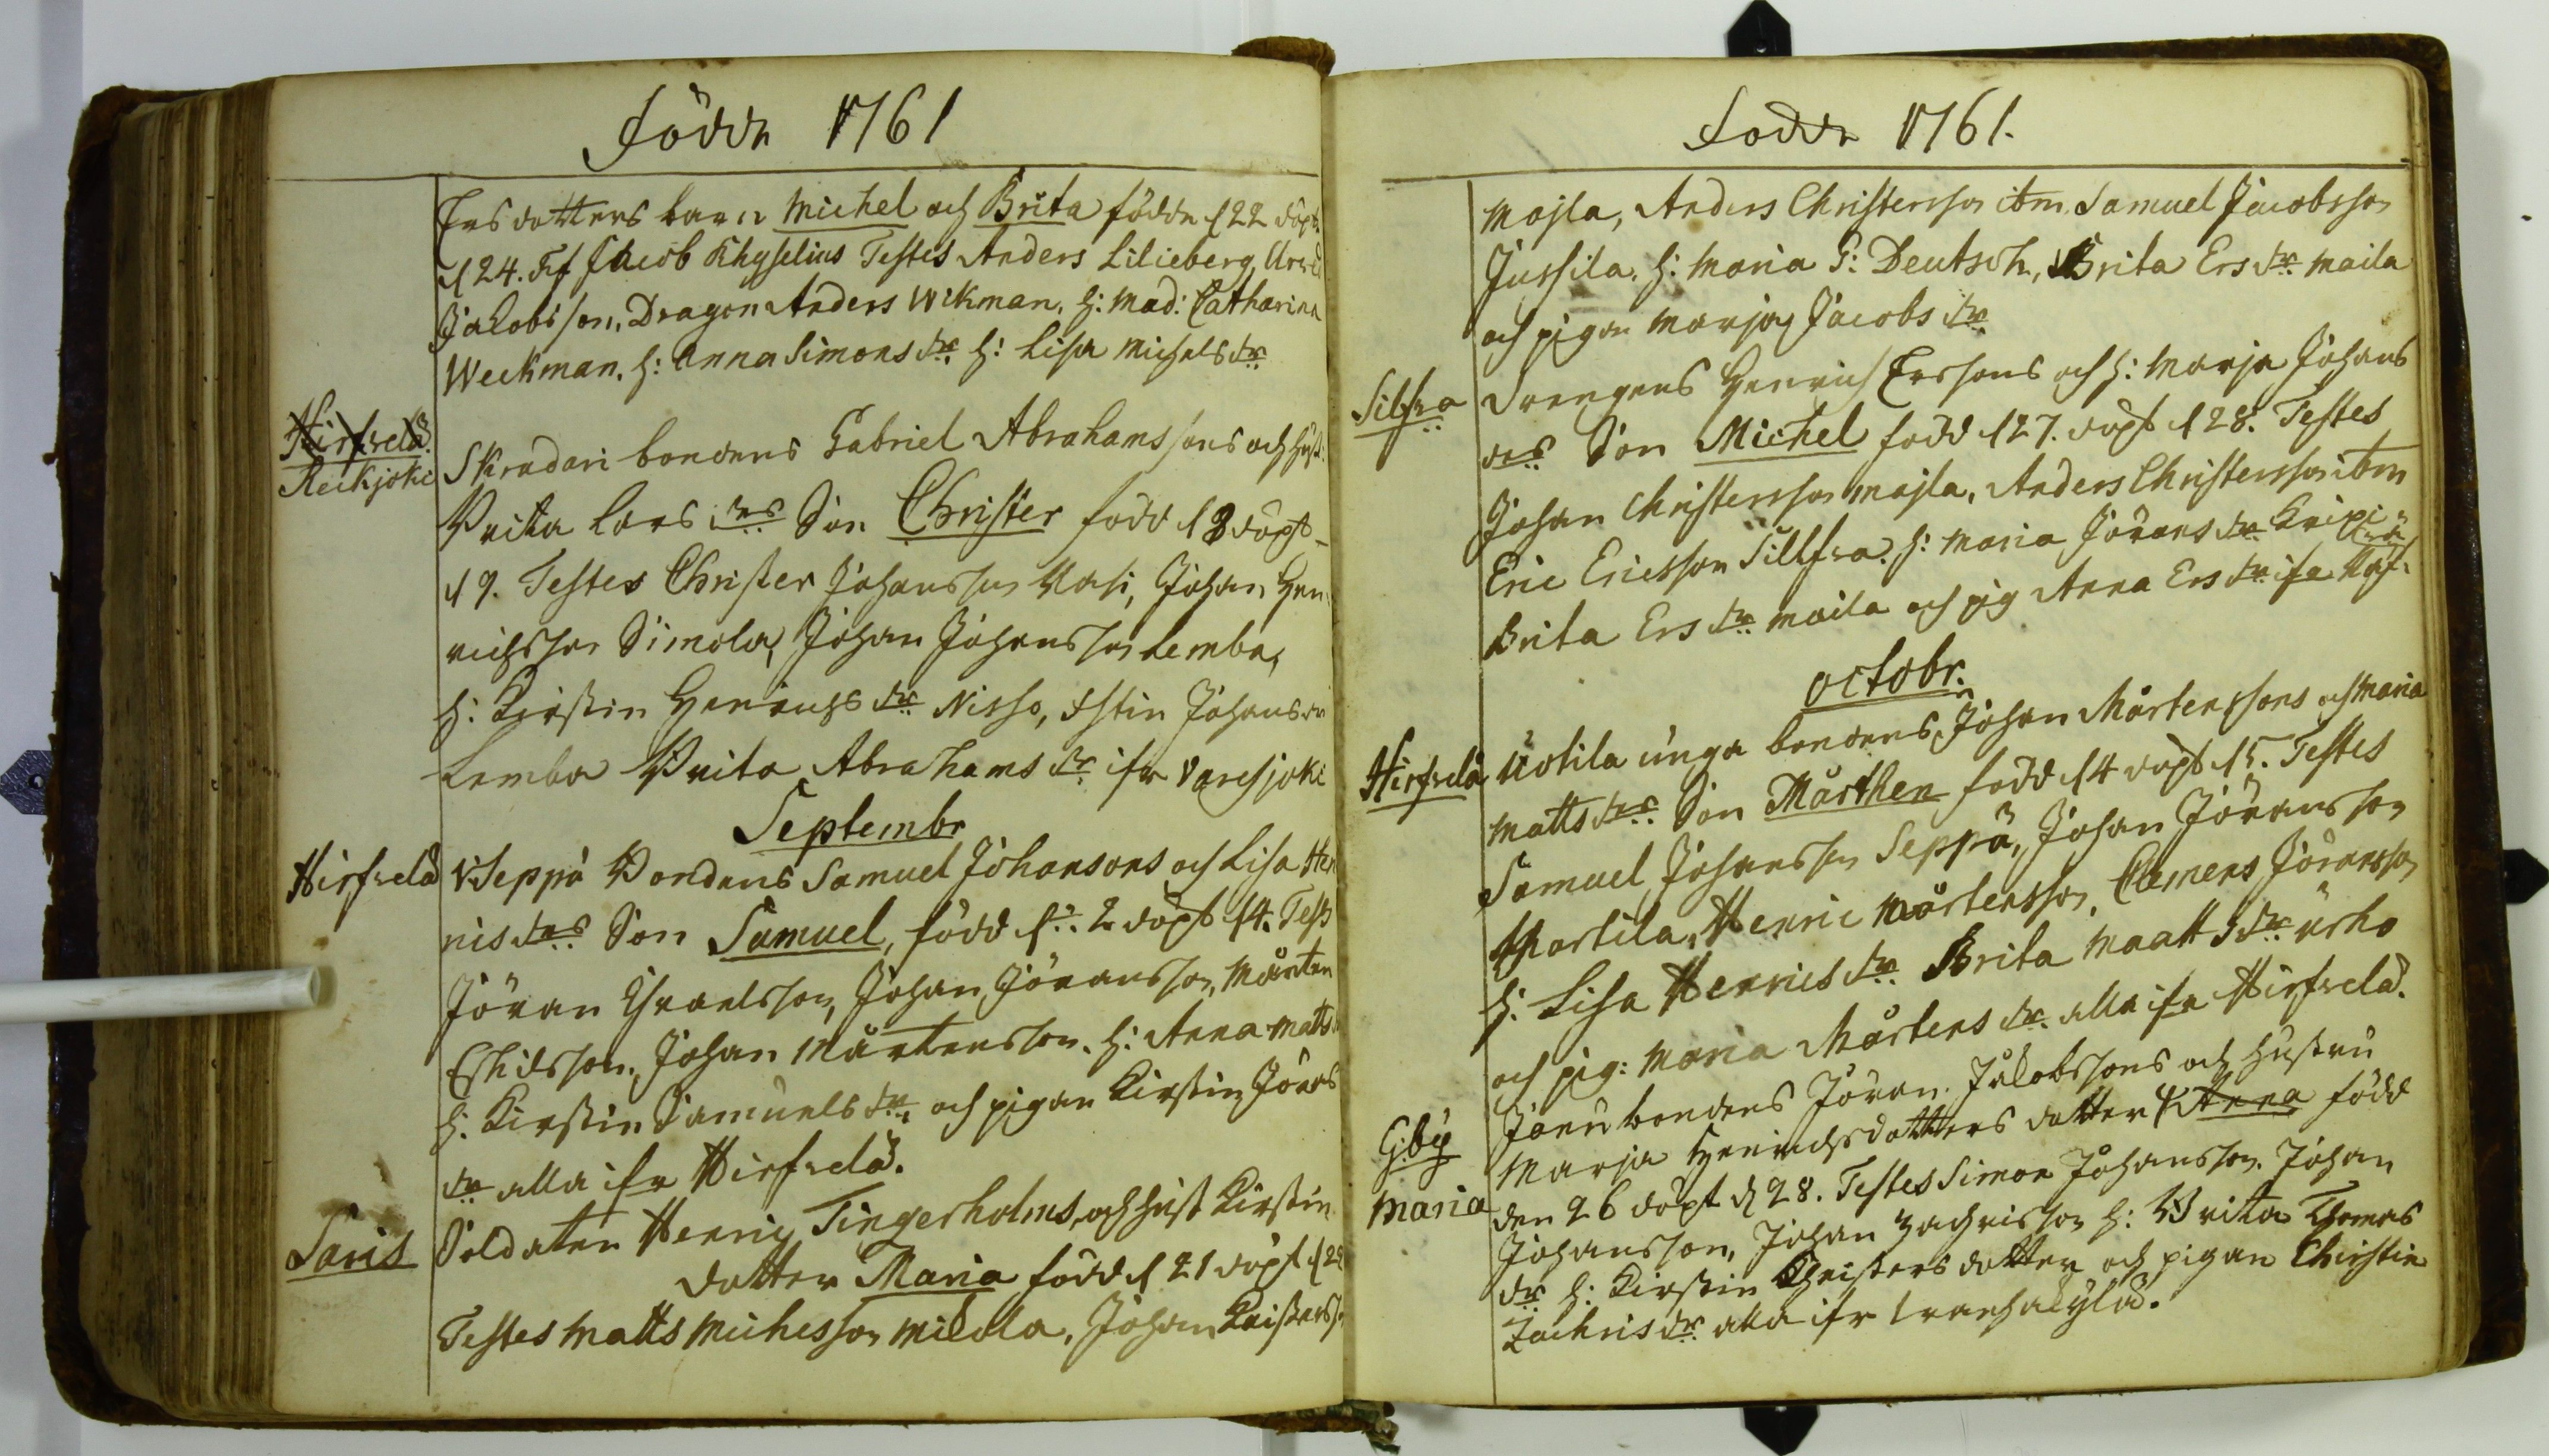 Födde 1761
Ersdotters barn Michel och Brita födde d 22 döpt
d 24. Ff Jacob Khyselius Testes Anders Lilieberg
Jakobsson, Dragon Anders Wikman, h: Mad: Catharina
Weckman. h: Anna Simons dr h: Lisa Michels dr
Hirfvelä.
Reikjoki
Skradari bondens Gabriel Abrahamssons och hust:
Brita Lars drs Son Christer född d 8 döpt
d 9. Testes Christer Johansson Uasi, Johan Hen
richsson Simola, Johan Johansson Lemba,
h: Kirstin Henrichs dr Nisso, Johans dr
Lemba Brita Abrahams dr ifr Varesjoki
Septembr
Hirfvelä
Seppä Bondens Samuel Johansons och Lisa Hen
nis drs Son Samuel, född d: 2 döpt d 4. Test
Jöran Israelsson, Johan Jöransson, Mårten
Eskilsson, Johan Mårtensson. h: Anna Matts
h: Kirstin Samuels dr. och pigan Kirstin Jörans
dr alla ifr Hirfvelä.
Saris
Soldaten Henric Tingerholms, och hust Kirstin
dotter Maria född d 21 döpt d 24
Testes Matts Michelsson Mickola, Johan Christersso
Födde 1761.
Majla, Anders Christersson ibm, Samuel Jacobsson
Jussila. h: Maria S: Deutsch, Brita Ers dr Maila
och pigan Marja Jacobs dr
Silfra
Drengens Henrich Erssons och h: Marja Johans
drs Son Michel född d 27. döpt d 28. Testes
Johan Christersson Majla, Anders Christersson ibm
Eric Ericsson Sillfra. h: Maria Jörans dr Knipi
Brita Ers dr Maila och pig Anna Ers dr ifr
octobr.
Hirfvelä
Uotila unga bondens, Johan Mårtenssons och Maria
Matts drs Son Mårthen född d 4 döpt d 5. Testes
Samuel Johansson Seppä, Johan Jöransson
Martila, Henric Mårtensson, Clemens Jöransson
h: Lisa Henrics dr Brita Maatts dr urho
och pig: Maria Mårtens dr. alla ifr Hirfvelä.
G:by
Maria
Joenu bondens Jöran Jakobssons och hustru
Marja Henrichsdotters dotter Anna född
den 26 döpt d 28. Testes Simon Johansson. Johan
Johansson, Johan Zachrisson h: Brita Thomas
dr h: Kirstin Christersdotter och pigan Christin
Zachris dr alla ifr